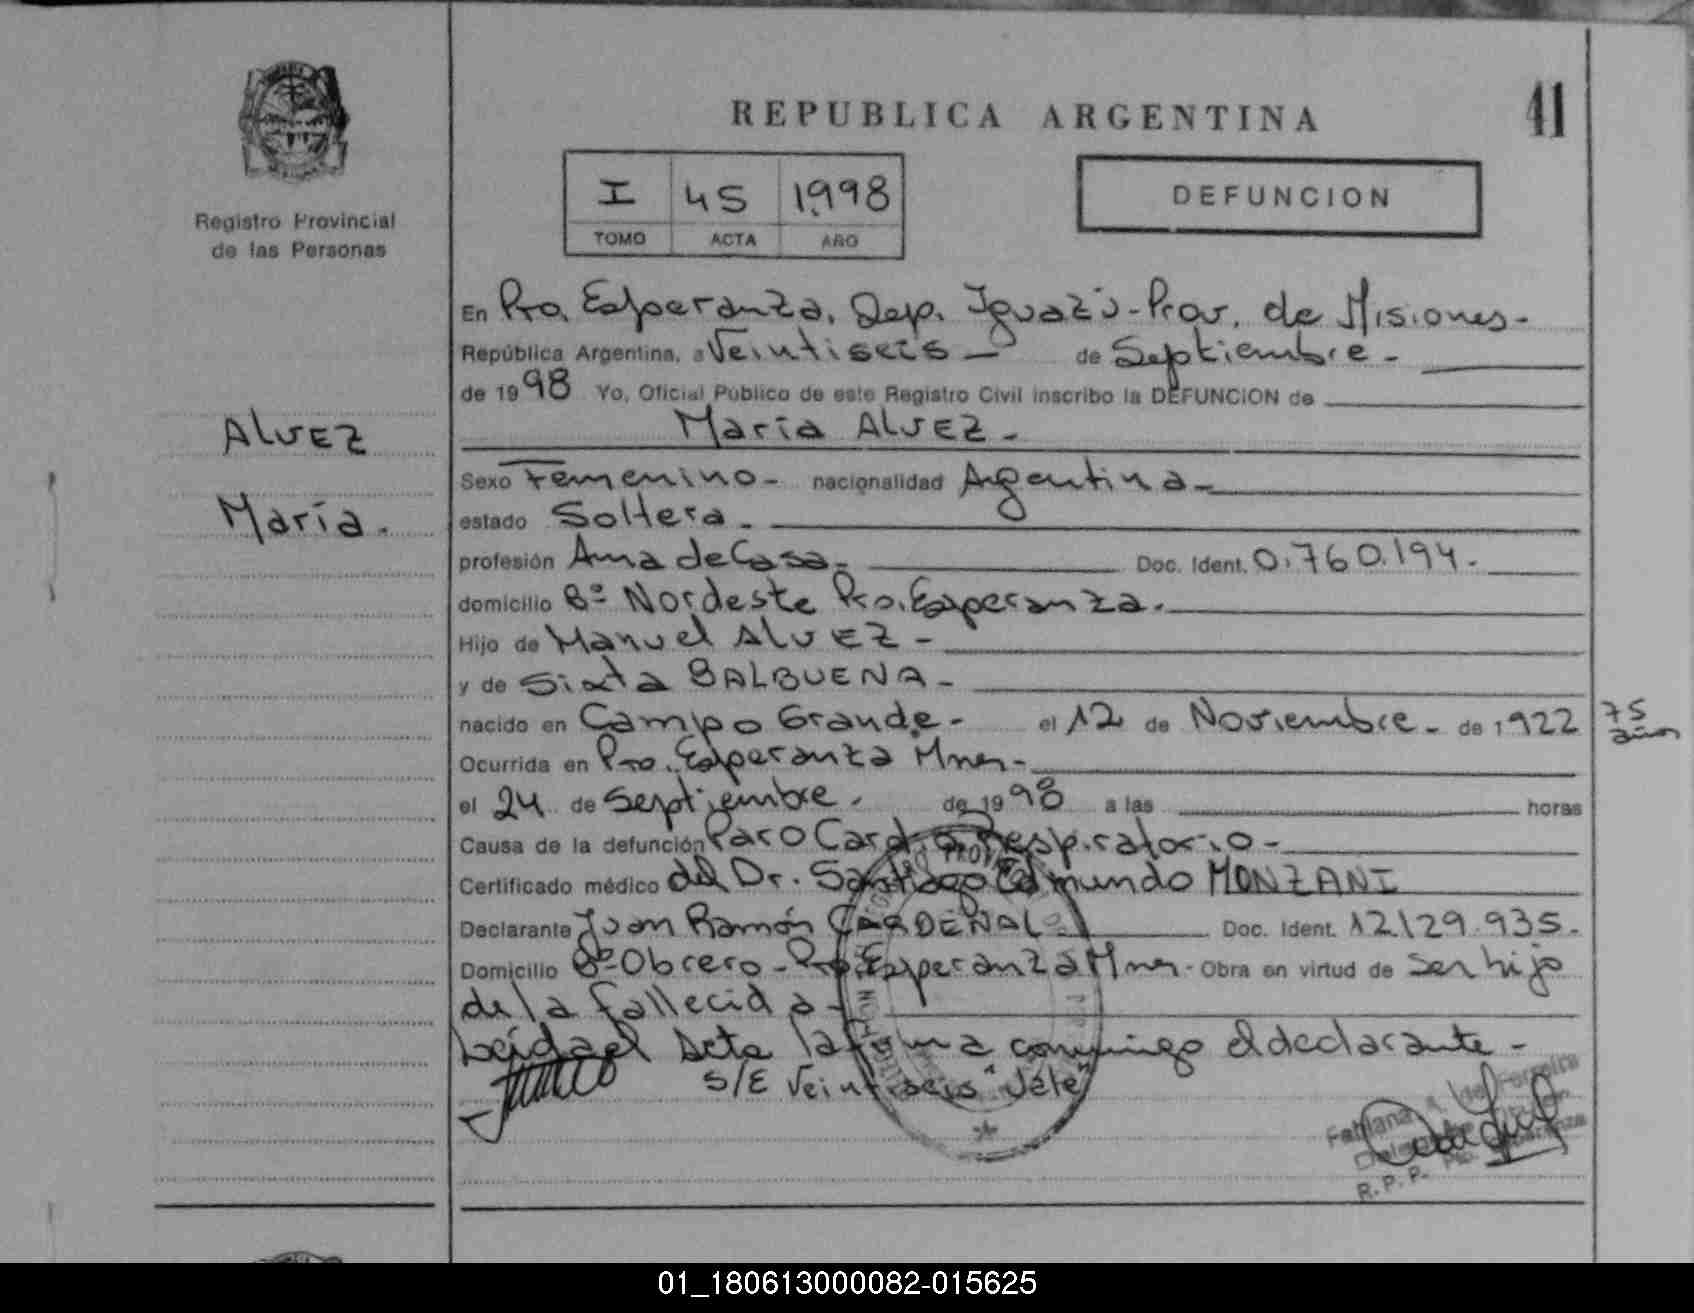 REPUBLICA ARGENTINA
41
Registro Provincial
de las Personas
I 45 1998
TOMO ACTA AÑO
DEFUNCION
En Pto. Esperanza, Dep. Iguazú - Prov. de Misiones -
República Argentina, a Veintiseis - de Septiembre -
de 1998 Yo, Oficial Público de este Registro Civil inscribo la DEFUNCION de
María ALVEZ -
ALVEZ
María.
Sexo Femenino - nacionalidad Argentina -
estado Soltera -
profesión Ama de Casa - Doc. Ident. 0.760.194 -
domicilio Bº Nordeste Pto. Esperanza.
Hijo de Manuel ALVEZ -
y de Sixta BALBUENA -
nacido en Campo Grande - el 12 de Noviembre - de 1922
75
años
Ocurrida en Pto. Esperanza Mnes -
el 24 de Septiembre. de 1998 a las horas
Causa de la defunción Paro Cardio Respiratorio -
Certificado médico del Dr. Santiago Edmundo MONZANI
Declarante Juan Ramón CARDENAL - Doc. Ident. 12.129.935 -
Domicilio Bº Obrero - Pto. Esperanza Mnes - Obra en virtud de ser hijo
de la fallecida -
Leida el Acta la firma conmigo el declarante -
S/E Veintiseis "Vale"
R. P. P. Pto. Esperanza
01_180613000082-015625